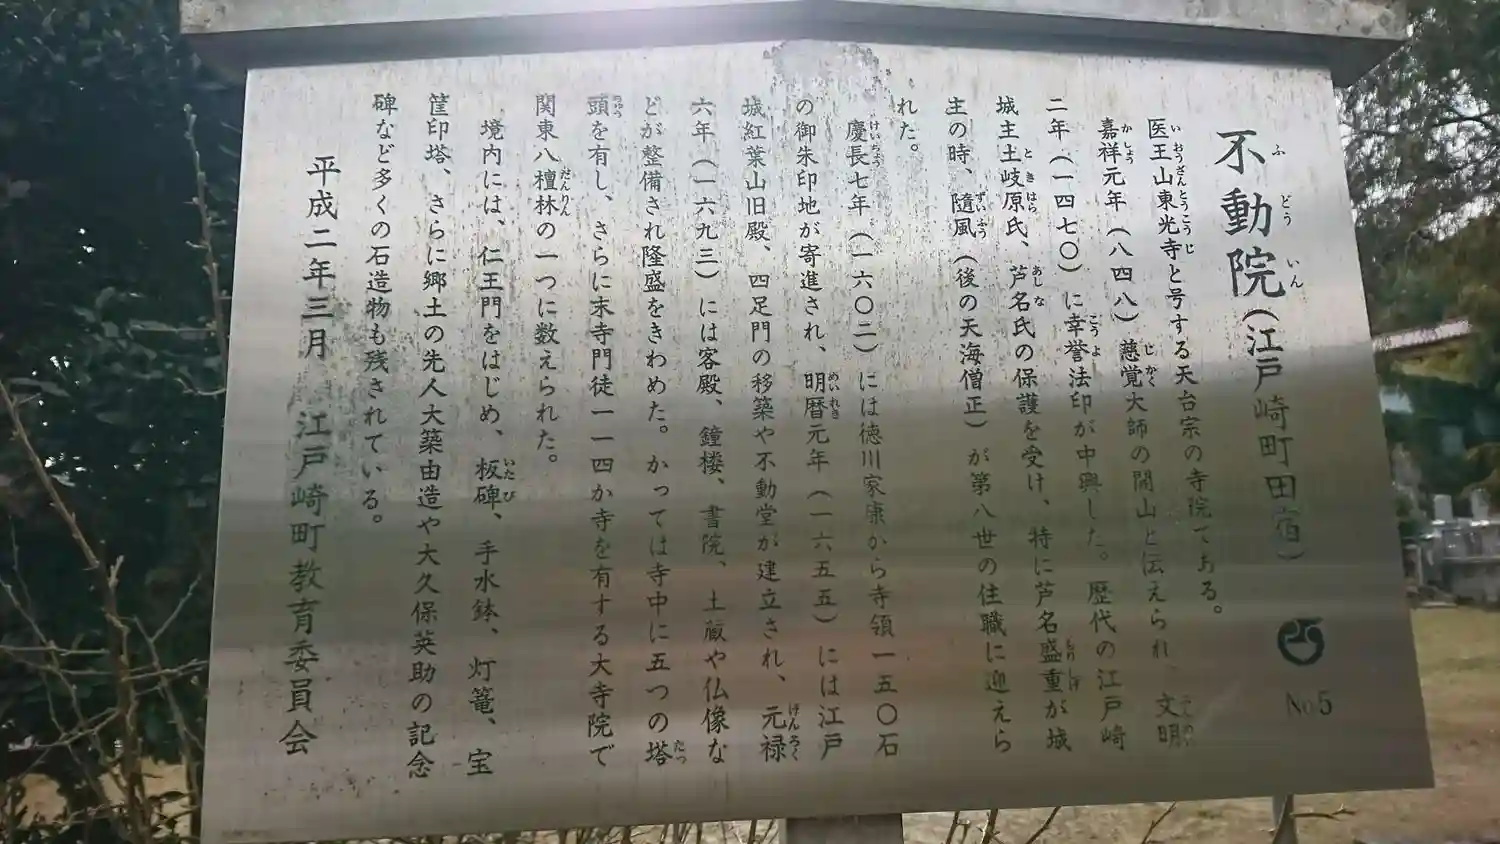 不動院(江戸崎町田宿)
医王山東光寺と号する天台宗の寺院である。
嘉祥元年(八四八)慈覚大師の開山と伝えられ 文明
二年(一四七〇)に幸誉法印が中興した。歴代の江戸崎
城主土岐原氏、芦名氏の保護を受け、特に芦名盛重が城
主の時、随風(後の天海僧正)が第八世の住職に迎えら
れた。
慶長七年(一六〇二)には徳川家康から寺領一五〇石
の御朱印地が寄進され、明暦元年(一六五五)には江戸
城紅葉山旧殿、四足門の移築や不動堂が建立され、元禄
六年(一六九三)には客殿、鐘楼、書院、土蔵や仏像な
どが整備され隆盛をきわめた。かっては寺中に五つの塔
頭を有し、さらに末寺門徒一一四か寺を有する大寺院で
関東八檀林の一つに数えられた。
境内には、仁王門をはじめ、板碑、手水鉢、灯篭、宝
筐印塔、さらに郷土の先人大築由造や大久保英助の記念
碑など多くの石造物も残されている。
平成二年三月 江戸崎町教育委員会
No.5